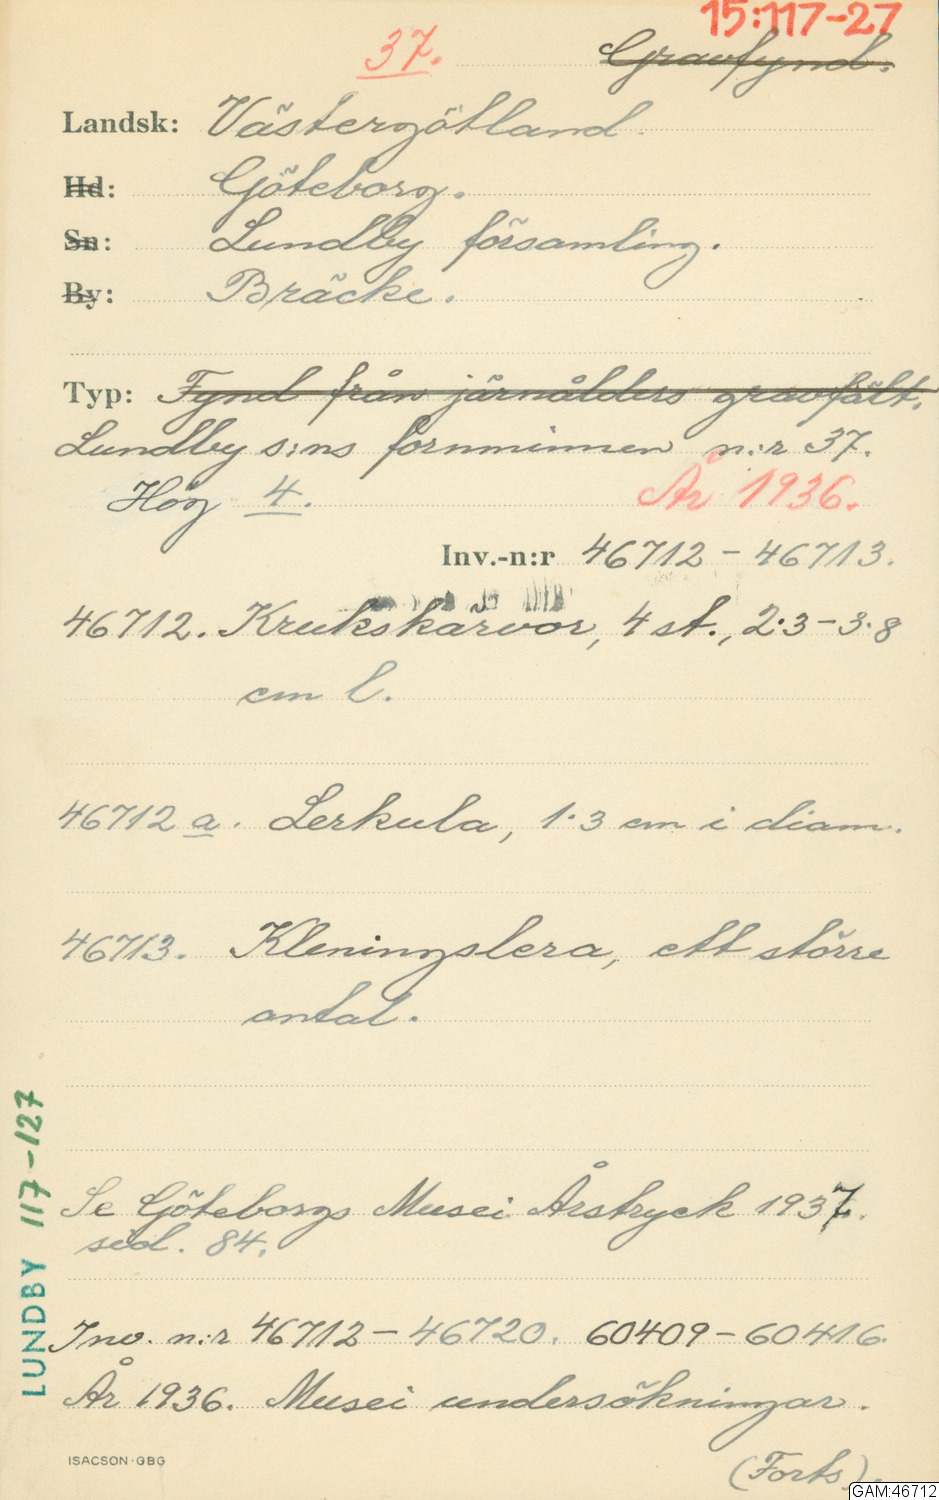 15:117-27
37.
Gravfynd.
Landsk: Västergötland.
Hd: Göteborg.
Sn: Lundby församling.
By: Bräcke.
Typ: Fynd från järnålders gravfält.
Lundby s:ns fornminnen n:r 37.
Hög 4. År 1936.
Inv.-n:r 46712 - 46713.
46712. Krukskärvor, 4 st., 2.3 - 3.8
cm l.
46712 a. Lerkula, 1.3 cm i diam.
46713. Kleningslera, ett större
antal.
Se Göteborgs Musei Årstryck 1937.
sid. 84.
Inv. n:r 46712 - 46720. 60409 - 60416.
År 1936. Musei undersökningar.
ISACSON·GBG
(Forts).
LUNDBY 117-127
GAM:46712